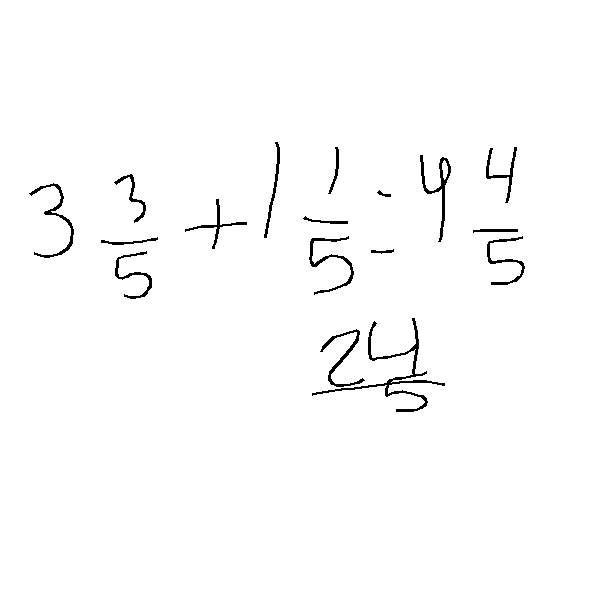 3 3/5 + 1 1/5 = 4 4/5
24/5